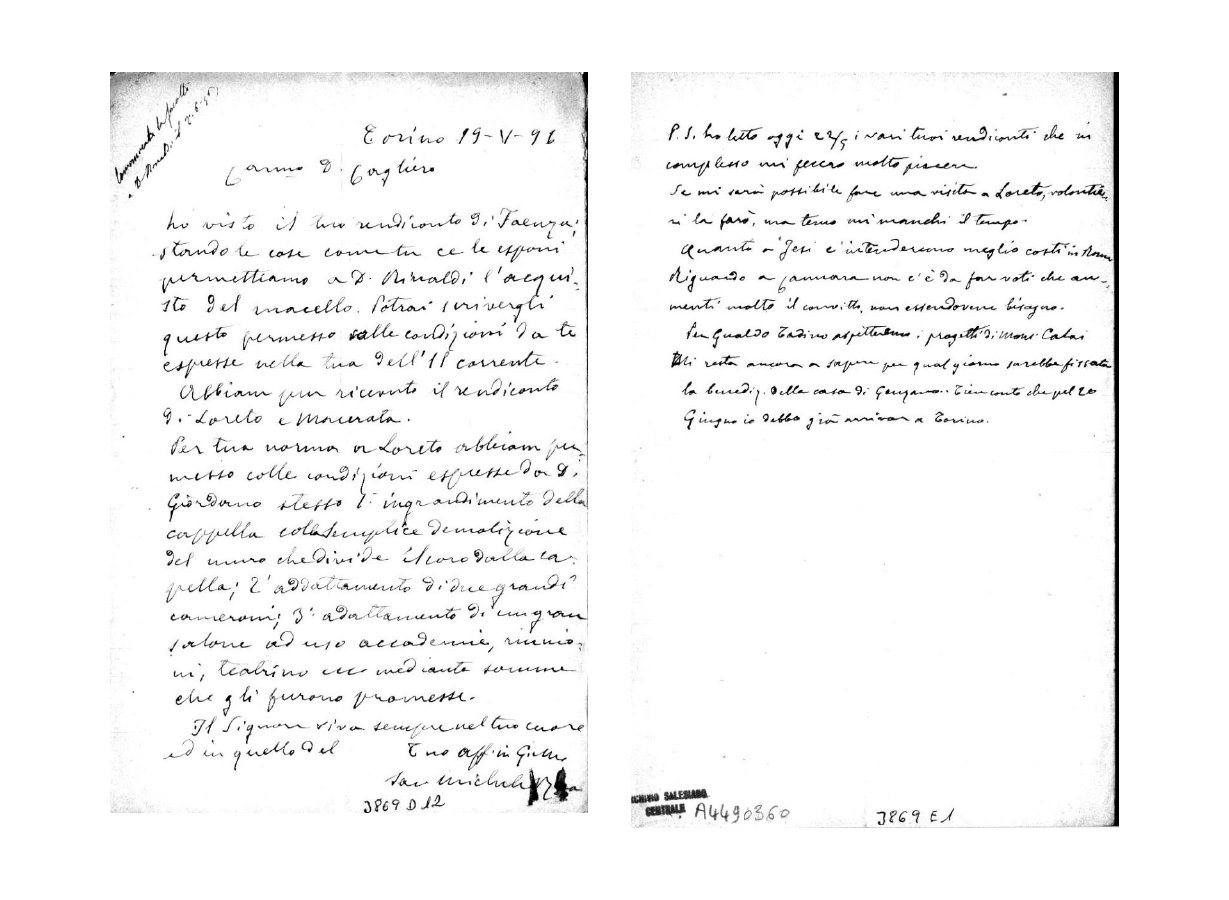 Torino 19-V-96
Carmo D. Cagliero
ho visto il tuo rendiconto di Faenza;
stando le cose come tu ce le esponi
permettiamo a D. Rinaldi l'acqui-
sto del macello. Potrai scrivergli
questo permesso colle condizioni da te
espresse nella tua dell'11 corrente.
Abbiam pur ricevuto il rendiconto
di Loreto e Macerata.
Per tua norma a Loreto abbiam per-
messo colle condizioni espresse da D.
Giordano stesso 1° ingrandimento della
cappella colla semplice demolizione
del muro che divide il coro dalla ca-
pella; 2° addattamento di due grandi
cameroni; 3° adattamento di un gran
salone ad uso accademie, riunio-
ni, teatrino ecc mediante somme
che gli furono promesse.
Il Signore viva sempre nel tuo cuore
ed in quello del Tuo aff. in G.
Sac Michele Rua
J869 D 12
P.S. ho letto oggi 22/5 i vari tuoi rendiconti che in
complesso mi fecero molto piacere
Se mi sarà possibile fare una visita a Loreto, volontie-
ri la farò, ma temo mi manchi il tempo.
Quanto a Jesi c'intenderemo meglio costì in Roma
Riguardo a Cannara non c'è da far voti che au-
menti molto il convitto, non essendovene bisogno.
Per Gualdo Tadino aspetteremo i progetti di Mons
Mi resta ancora a sapere per qual giorno sarebbe fissata
la benediz. della casa di Genzano. Tien conto che pel 20
Giugno io debbo già arrivar a Torino.
ARCHIVIO SALESIANO
CENTRALE A4490360
J869 E1